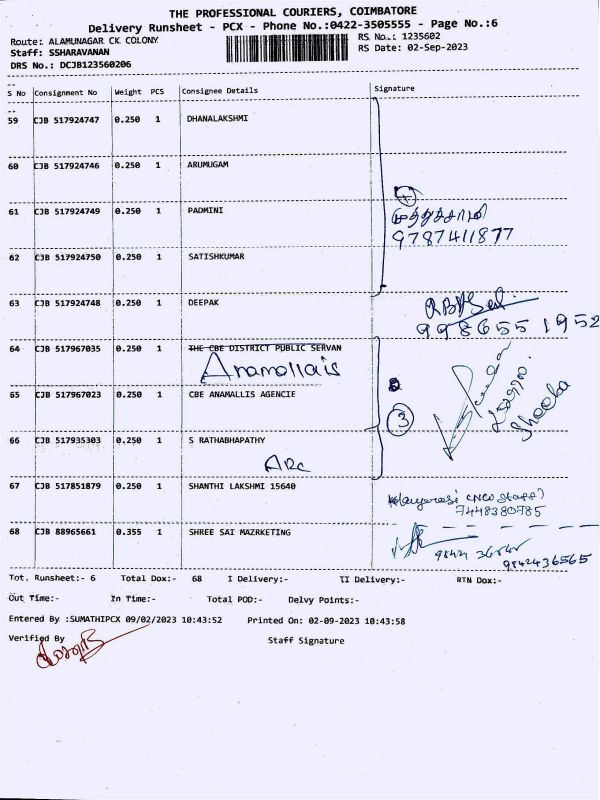 THE PROFESSIONAL COURIERS, COIMBATORE
Delivery Runsheet - PCX - Phone No.:0422-3505555 - Page No.:6
Route: ALAMUNAGAR CK COLONY RS No.: 1235602
Staff: SSHARAVANAN RS Date: 02-Sep-2023
DRS No.: DCJB123560206
S No Consignment No Weight PCS Consignee Details Signature
59 CJB 517924747 0.250 1 DHANALAKSHMI
60 CJB 517924746 0.250 1 ARUMUGAM
4
61 CJB 517924749 0.250 1 PADMINI முத்துச்சாமி
9787411877
62 CJB 517924750 0.250 1 SATISHKUMAR
63 CJB 517924748 0.250 1 DEEPAK
9986551952
64 CJB 517967035 0.250 1 THE CBE DISTRICT PUBLIC SERVAN
Anamallais
65 CJB 517967023 0.250 1 CBE ANAMALLIS AGENCIE
3 Shooba
66 CJB 517935303 0.250 1 S RATHABHAPATHY
67 CJB 517851879 0.250 1 SHANTHI LAKSHMI 15640
7448380785
68 CJB 88965661 0.355 1 SHREE SAI MAZRKETING
9842436565
Tot, Runsheet:- 6 Total Dox:- 68 I Delivery:- II Delivery:- RTN Dox:-
Out Time:- In Time:- Total POD:- Delvy Points:-
Entered By :SUMATHIPCX 09/02/2023 10:43:52 Printed On: 02-09-2023 10:43:58
Verified By Staff Signature